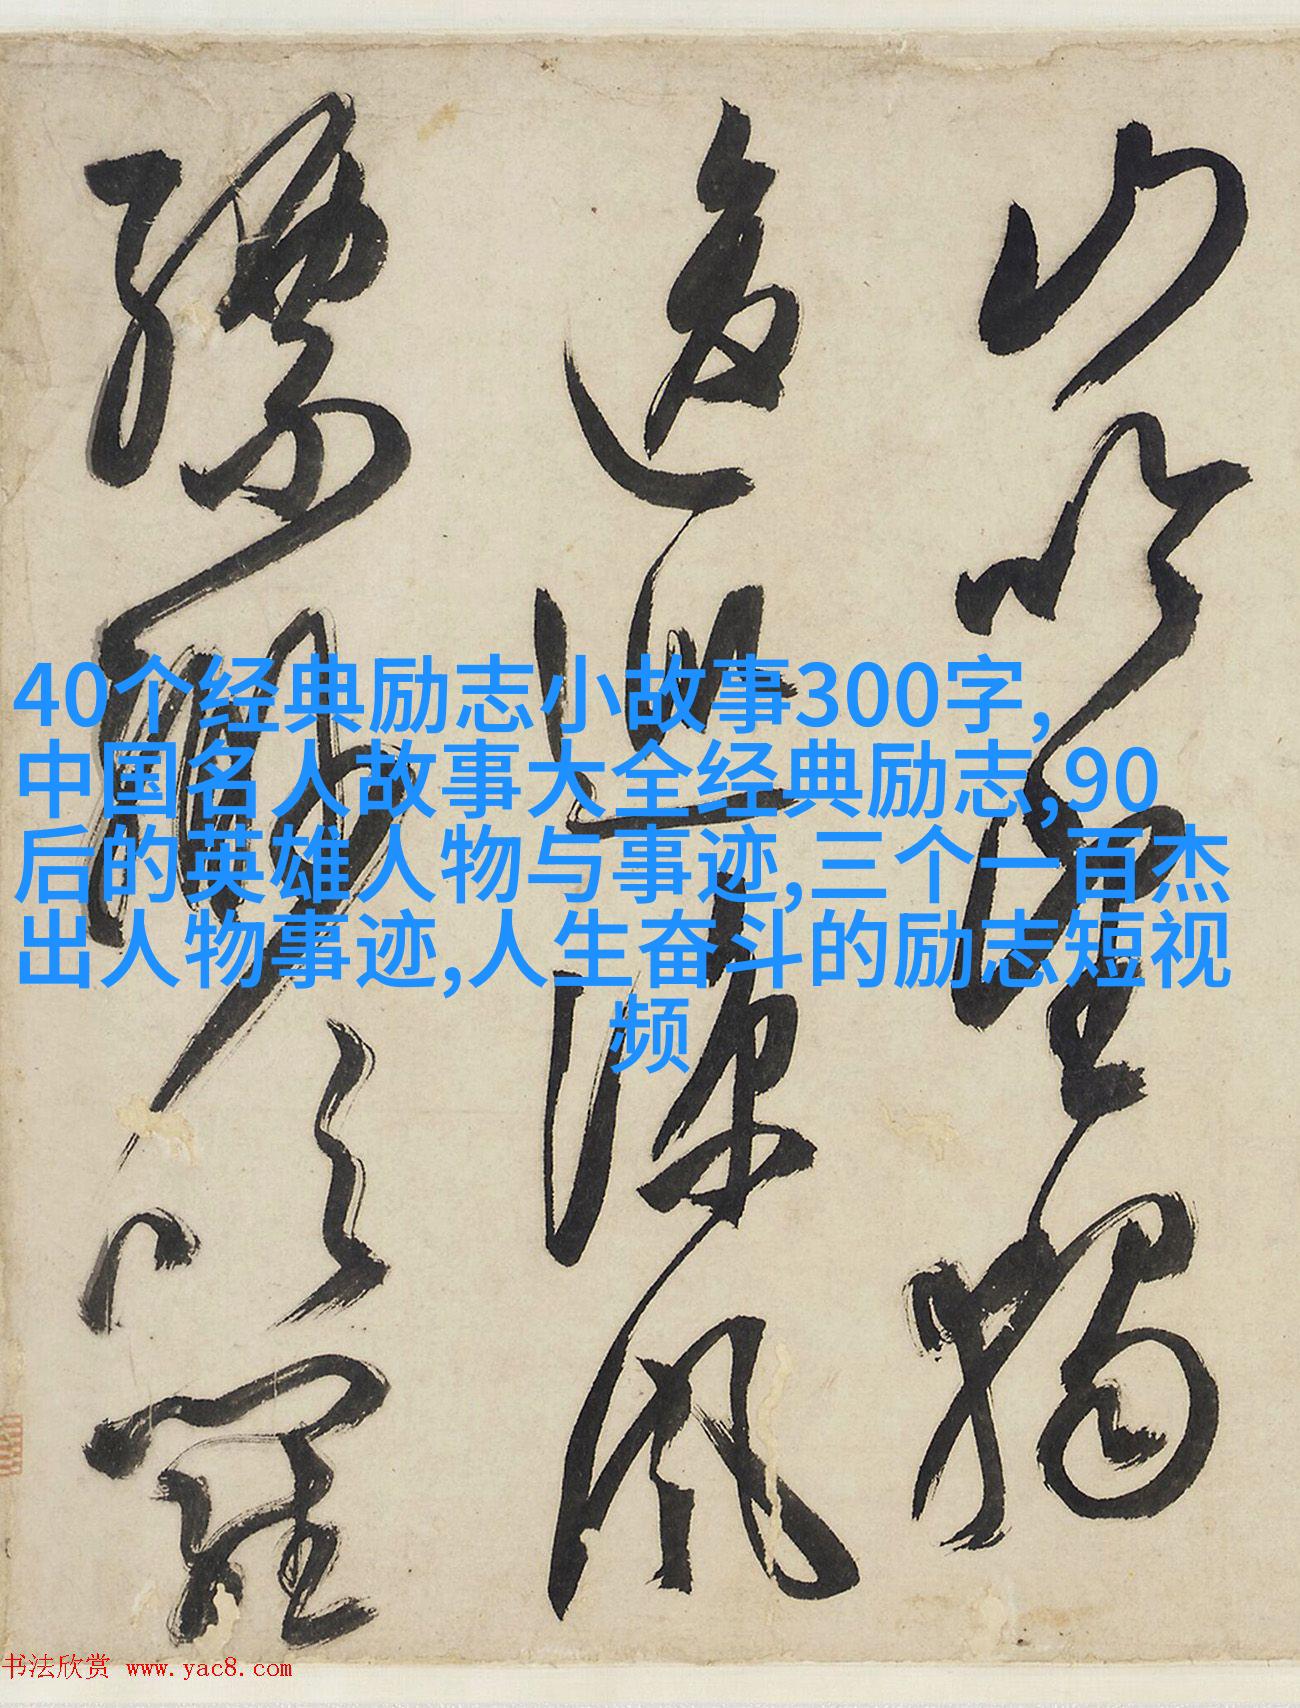 40个经典励志小故事300字,
中国名人故事大全经典励志,90
后的英雄人物与事迹,三个一百杰
出人物事迹,人生奋斗的励志短视
频
山吟望獨
涼風
以羅
书法欣赏 www.yac8.com